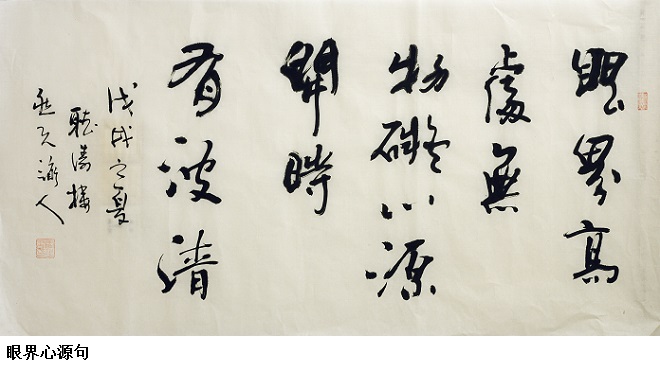 眼界高
處無
物礙心源
開時
有波清
戊戌之夏
聽濤樓
人
眼界心源句